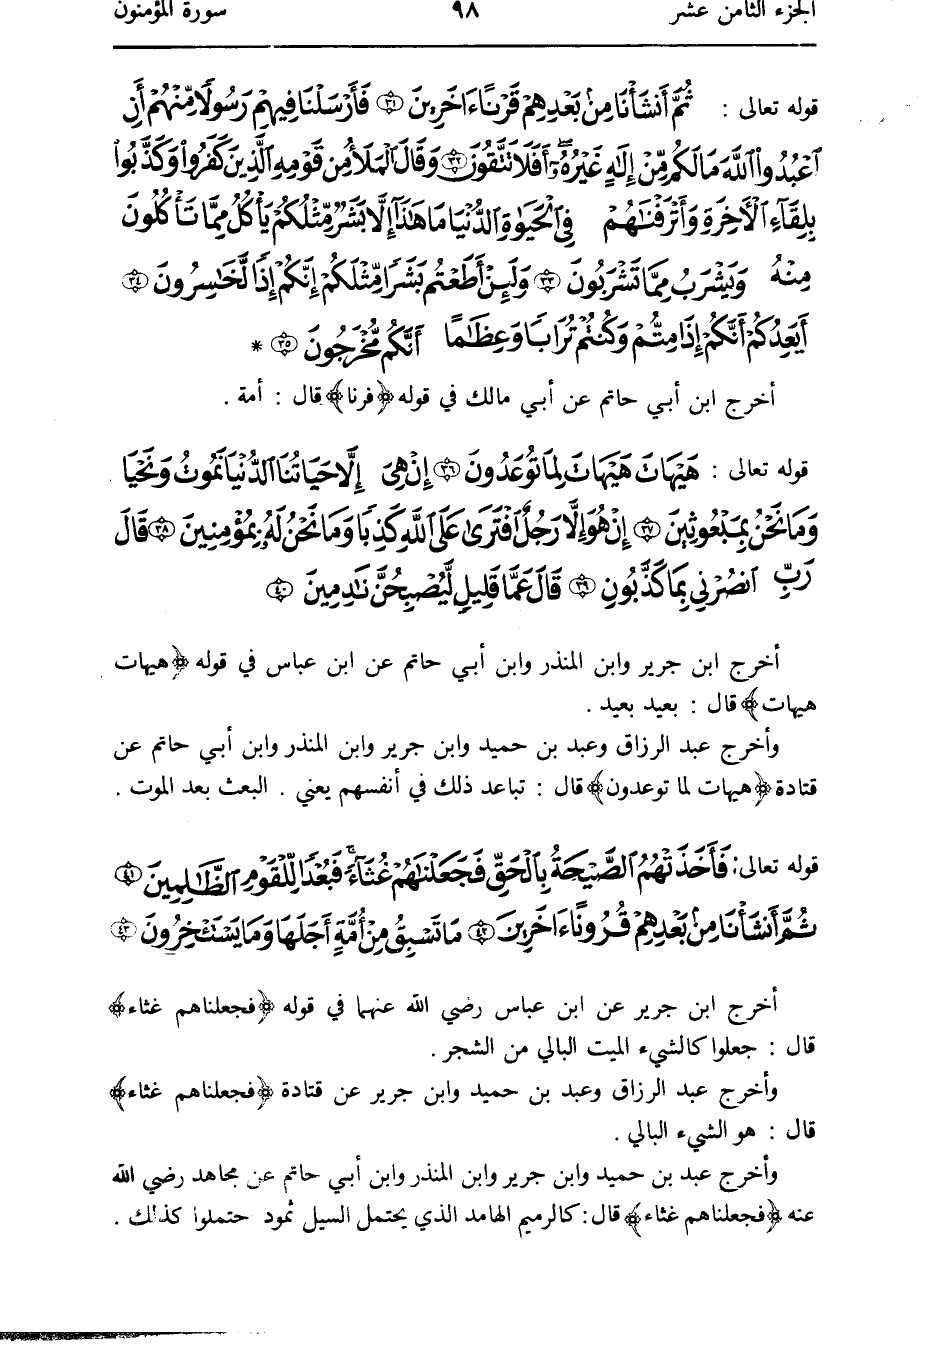 الجزء الثامن عشر ٩٨ سورة المؤمنون
قوله تعالى : ثُمَّ أَنشَأْنَا مِنۢ بَعْدِهِمْ قَرْنًا ءَاخَرِينَ ٣١ فَأَرْسَلْنَا فِيهِمْ رَسُولًا مِّنْهُمْ أَنِ
ٱعْبُدُوا۟ ٱللَّهَ مَا لَكُم مِّنْ إِلَٰهٍ غَيْرُهُۥٓ أَفَلَا تَتَّقُونَ ٣٢ وَقَالَ ٱلْمَلَأُ مِن قَوْمِهِ ٱلَّذِينَ كَفَرُوا۟ وَكَذَّبُوا۟
بِلِقَآءِ ٱلْأَخِرَةِ وَأَتْرَفْنَٰهُمْ فِى ٱلْحَيَوٰةِ ٱلدُّنْيَا مَا هَٰذَآ إِلَّا بَشَرٌ مِّثْلُكُمْ يَأْكُلُ مِمَّا تَأْكُلُونَ
مِنْهُ وَيَشْرَبُ مِمَّا تَشْرَبُونَ ٣٣ وَلَئِنْ أَطَعْتُم بَشَرًا مِّثْلَكُمْ إِنَّكُمْ إِذًا لَّخَٰسِرُونَ ٣٤
أَيَعِدُكُمْ أَنَّكُمْ إِذَا مِتُّمْ وَكُنتُمْ تُرَابًا وَعِظَٰمًا أَنَّكُم مُّخْرَجُونَ ٣٥ *
أخرج ابن أبي حاتم عن أبي مالك في قوله ﴿قرنا﴾ قال : أمة .
قوله تعالى : هَيْهَاتَ هَيْهَاتَ لِمَا تُوعَدُونَ ٣٦ إِنْ هِىَ إِلَّا حَيَاتُنَا ٱلدُّنْيَا نَمُوتُ وَنَحْيَا
وَمَا نَحْنُ بِمَبْعُوثِينَ ٣٧ إِنْ هُوَ إِلَّا رَجُلٌ ٱفْتَرَىٰ عَلَى ٱللَّهِ كَذِبًا وَمَا نَحْنُ لَهُۥ بِمُؤْمِنِينَ ٣٨ قَالَ
رَبِّ ٱنصُرْنِى بِمَا كَذَّبُونِ ٣٩ قَالَ عَمَّا قَلِيلٍ لَّيُصْبِحُنَّ نَٰدِمِينَ ٤٠
أخرج ابن جرير وابن المنذر وابن أبي حاتم عن ابن عباس في قوله ﴿هيهات
هيهات﴾ قال : بعيد بعيد .
وأخرج عبد الرزاق وعبد بن حميد وابن جرير وابن المنذر وابن أبي حاتم عن
قتادة ﴿هيهات لما توعدون﴾ قال : تباعد ذلك في أنفسهم يعني . البعث بعد الموت .
قوله تعالى : فَأَخَذَتْهُمُ ٱلصَّيْحَةُ بِٱلْحَقِّ فَجَعَلْنَٰهُمْ غُثَآءً فَبُعْدًا لِّلْقَوْمِ ٱلظَّٰلِمِينَ ٤١
ثُمَّ أَنشَأْنَا مِنۢ بَعْدِهِمْ قُرُونًا ءَاخَرِينَ ٤٢ مَا تَسْبِقُ مِنْ أُمَّةٍ أَجَلَهَا وَمَا يَسْتَـْٔخِرُونَ ٤٣
أخرج ابن جرير عن ابن عباس رضي الله عنهما في قوله ﴿فجعلناهم غثاء﴾
قال : جعلوا كالشيء الميت البالي من الشجر .
وأخرج عبد الرزاق وعبد بن حميد وابن جرير عن قتادة ﴿فجعلناهم غثاء﴾
قال : هو الشيء البالي .
وأخرج عبد بن حميد وابن جرير وابن المنذر وابن أبي حاتم عن مجاهد رضي الله
عنه ﴿فجعلناهم غثاء﴾ قال : كالرميم الهامد الذي يحتمل السيل ثمود حتملوا كذلك .